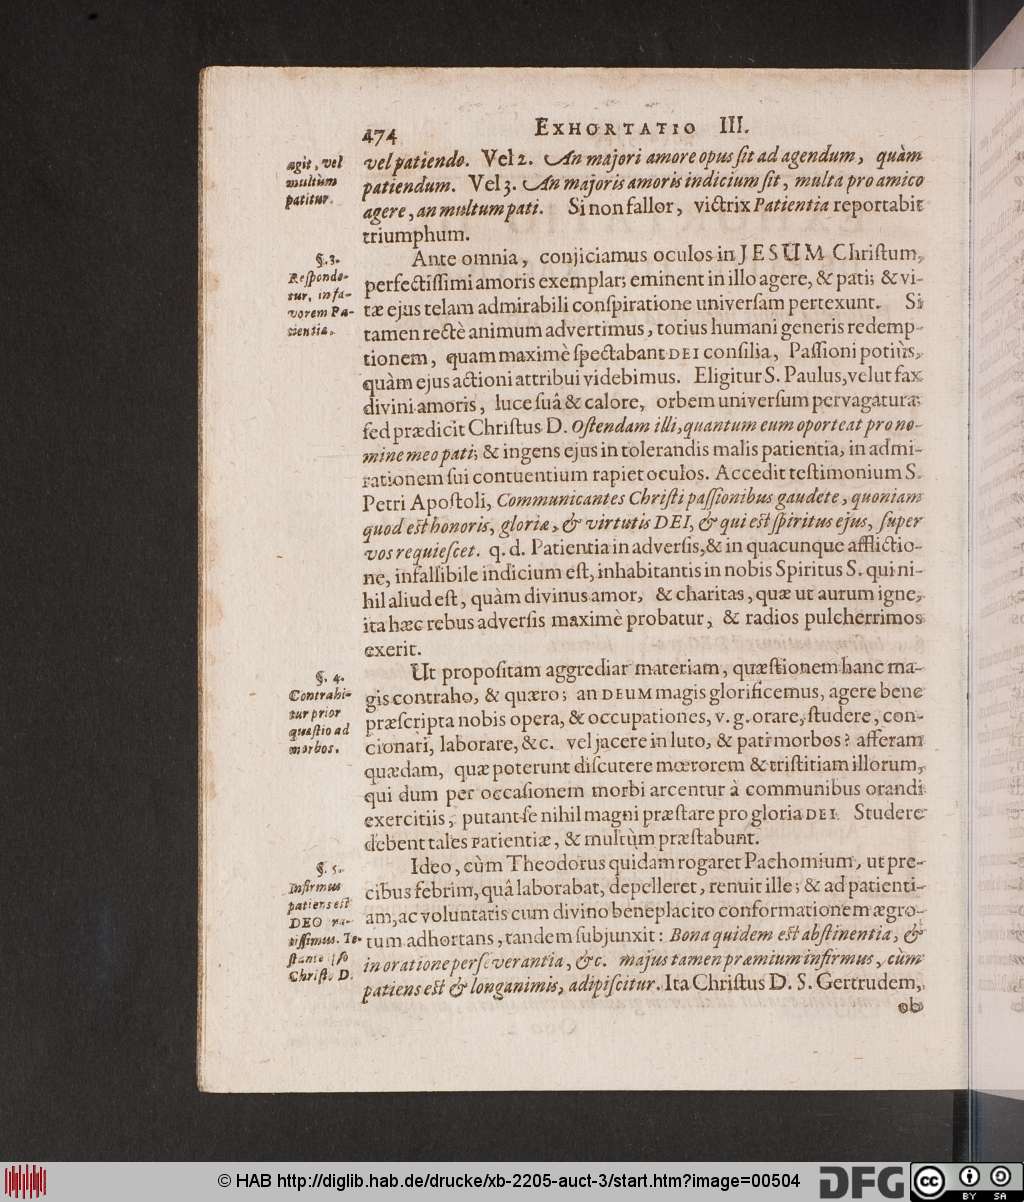 474
EXHORTATIO III.
agit, vel
multùm
patitur.
vel patiendo. Vel 2. An majori amore opus ſit ad agendum, quàm
patiendum. Vel 3. An majoris amoris indicium ſit, multa pro amico
agere, an multum pati. Si non fallor, victrix Patientia reportabit
triumphum.
§. 3.
Reſponde-
tur, in fa-
vorem Pa-
tientiæ.
Ante omnia, conjiciamus oculos in JESUM Chriſtum,
perfectiſſimi amoris exemplar; eminent in illo agere, & pati; & vi-
tæ ejus telam admirabili conſpiratione univerſam pertexunt. Si
tamen rectè animum advertimus, totius humani generis redemp-
tionem, quam maximè ſpectabant DEI conſilia, Paſſioni potiùs,
quàm ejus actioni attribui videbimus. Eligitur S. Paulus, velut fax
divini amoris, luce ſuâ & calore, orbem univerſum pervagatura;
ſed prædicit Chriſtus D. Oſtendam illi, quantum eum oporteat pro no-
mine meo pati; & ingens ejus in tolerandis malis patientia, in admi-
rationem ſui contuentium rapiet oculos. Accedit teſtimonium S.
Petri Apoſtoli, Communicantes Chriſti paſſionibus gaudete, quoniam
quod eſt honoris, gloriæ, & virtutis DEI, & qui eſt ſpiritus ejus, ſuper
vos requieſcet. q. d. Patientia in adverſis, & in quacunque afflictio-
ne, infallibile indicium eſt, inhabitantis in nobis Spiritus S. qui ni-
hil aliud eſt, quàm divinus amor, & charitas, quæ ut aurum igne,
ita hæc rebus adverſis maximè probatur, & radios pulcherrimos
exerit.
§. 4.
Contrahi-
tur prior
quæſtio ad
morbos.
Ut propoſitam aggrediar materiam, quæſtionem hanc ma-
gis contraho, & quæro; an DEUM magis glorificemus, agere bene
præſcripta nobis opera, & occupationes, v. g. orare, ſtudere, con-
cionari, laborare, &c. vel jacere in luto, & pati morbos? afferam
quædam, quæ poterunt diſcutere mœrorem & triſtitiam illorum,
qui dum per occaſionem morbi arcentur à communibus orandi
exercitiis, putant ſe nihil magni præſtare pro gloria DEI. Studere
debent tales Patientiæ, & multùm præſtabunt.
§. 5.
Infirmus
patiens eſt
DEO ra-
tiſſimus. Te-
ſtante ipſo
Chriſto D.
Ideo, cùm Theodorus quidam rogaret Pachomium, ut pre-
cibus febrim, quâ laborabat, depelleret, renuit ille; & ad patienti-
am, ac voluntatis cum divino beneplacito conformationem ægro-
tum adhortans, tandem ſubjunxit: Bona quidem eſt abſtinentia, &
in oratione perſeverantia, &c. majus tamen præmium infirmus, cùm
patiens eſt & longanimis, adipiſcitur. Ita Chriſtus D. S. Gertrudem,
ob
© HAB http://diglib.hab.de/drucke/xb-2205-auct-3/start.htm?image=00504
DFG
cc BY SA